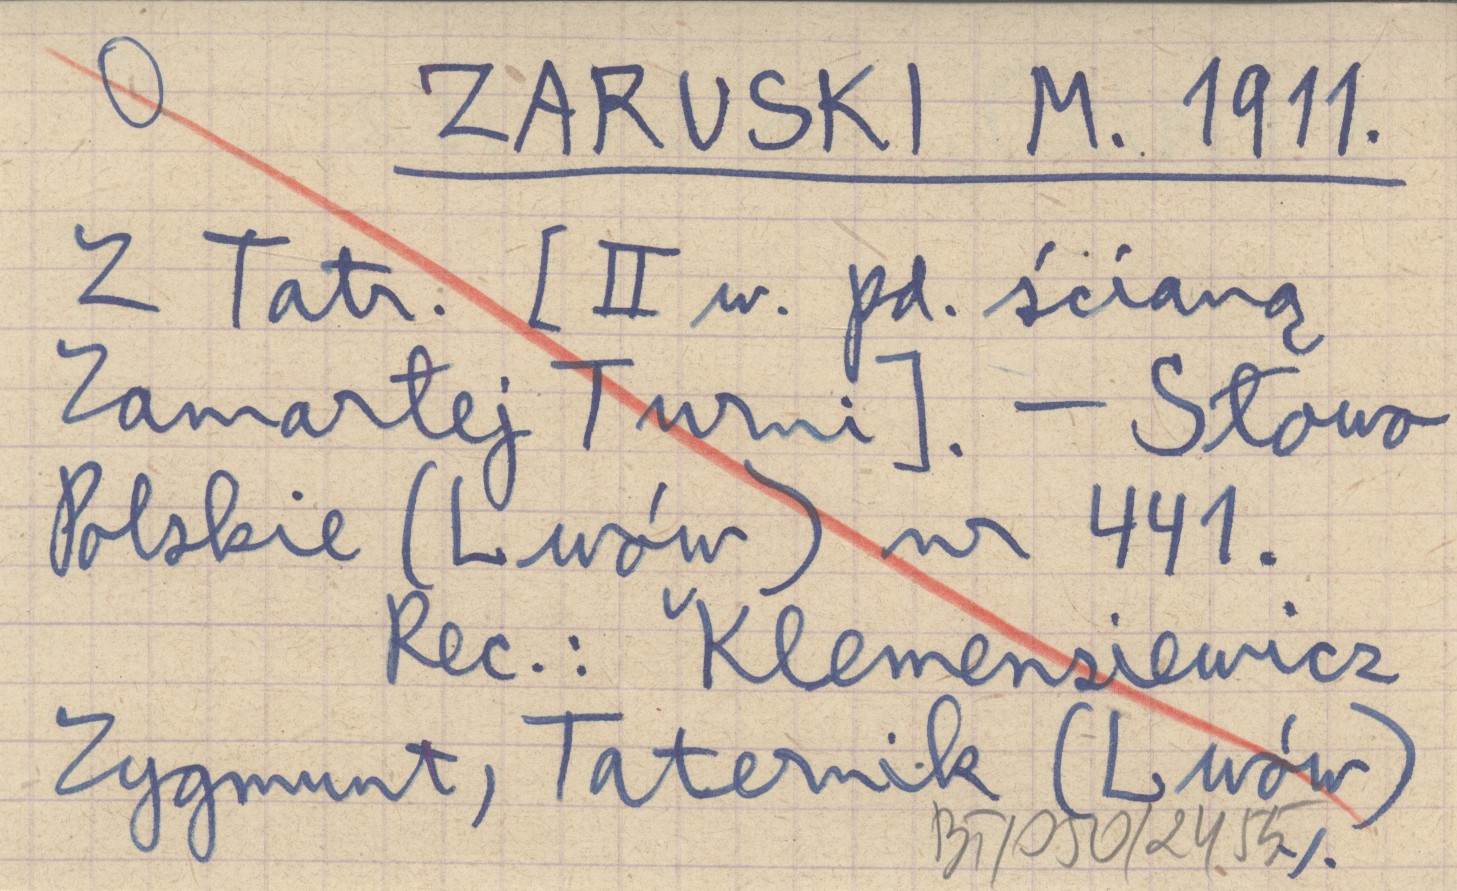 O ZARUSKI M. 1911.
Z Tatr. [II w. pd. ścianą
Zamarłej Turni]. — Słowo
Polskie (Lwów) nr 441.
Rec.: Klemensiewicz
Zygmunt, Taternik (Lwów)